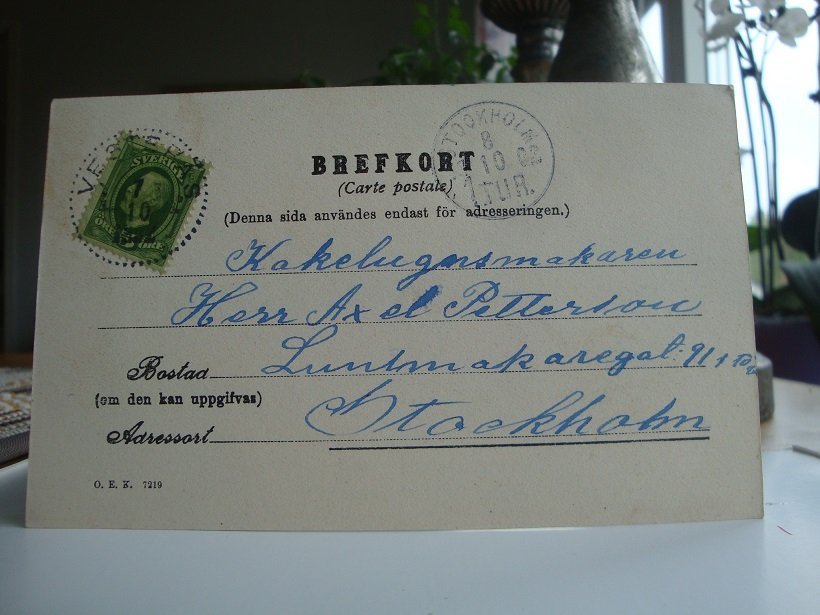 SVERIGE
STOCKHOLM
8
10
1.TUR.
BREFKORT
(Carte postale)
(Denna sida användes endast för adresseringen.)
Kakelugnsmakaren
Herr Axel Petterson
Bostad Luntmakaregat. 91 1 tr
(om den kan uppgifvas)
Adressort Stockholm
O. E. K. 7219